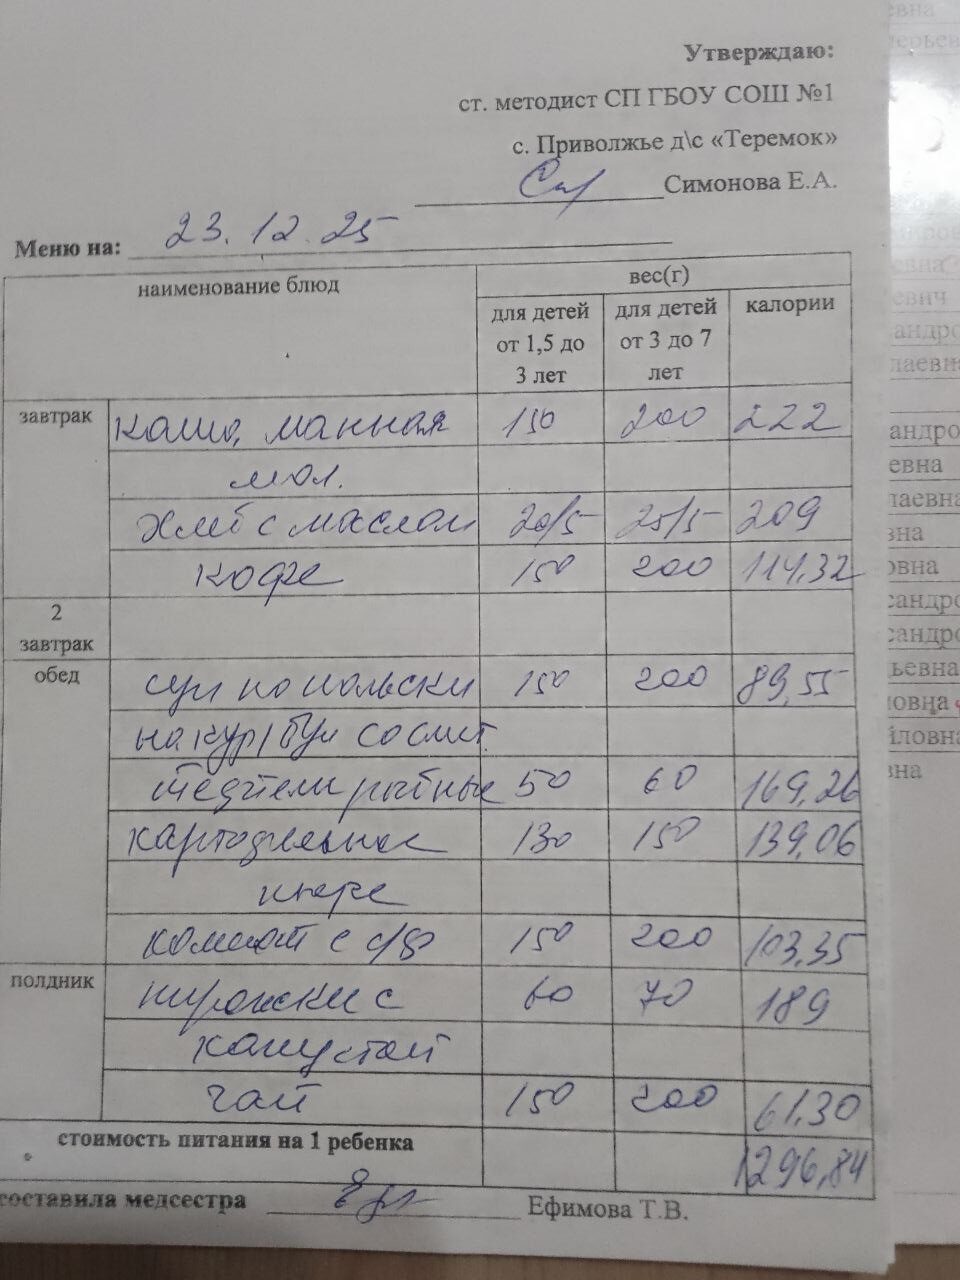 Утверждаю:
ст. методист СП ГБОУ СОШ №1
с. Приволжье д\с «Теремок»
Симонова Е.А.
Меню на: 23.12.25
наименование блюд вес(г)
для детей от 1,5 до 3 лет для детей от 3 до 7 лет калории
завтрак каша манная 150 200 222
мол.
хлеб с маслом 20/5 25/5 209
кофе 150 200 114,32
2 завтрак
обед суп по польски 150 200 89,55
на кур/бул со смет.
тефтели рыбные 50 60 169,26
картофельное 130 150 139,06
пюре
компот с с/ф 150 200 103,35
полдник пирожки с 60 70 189
капустой
чай 150 200 61,30
стоимость питания на 1 ребенка 1296,84
составила медсестра Ефимова Т.В.
евна
ерьев
евна
евич
андро
лаевна
андро
евна
лаевна
вна
овна
сандро
сандро
ьевна
овна
йловна
вна